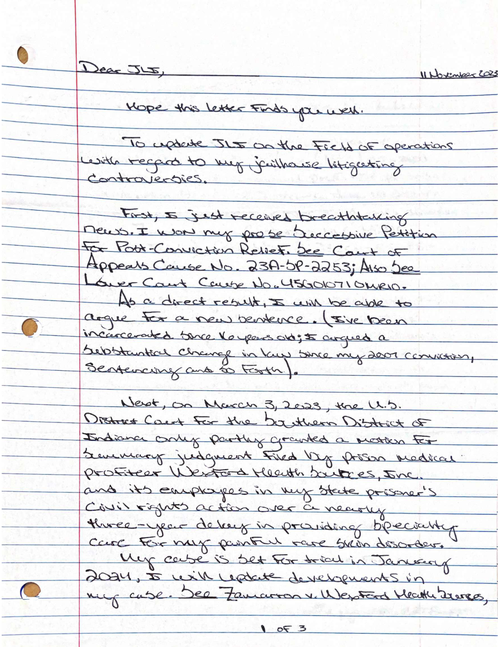 Dear JLI,
11 November 2023
Hope this letter finds you well.
To update JLI on the field of operations
with regard to my jailhouse litigating
controversies.
First, I just received breathtaking
news. I won my prose Successive Petition
for Post-Conviction Relief. See Court of
Appeals Cause No. 23A-SP-2253; Also See
Lower Court Cause No.
As a direct result, I will be able to
argue for a new sentence. (I've been
incarcerated since years old; I argued a
substantial change in law since my 2007 conviction,
sentencing and so forth).
Next, on March 3, 2023, the U.S.
District Court for the Southern District of
Indiana only partly granted a motion for
summary judgment filed by prison medical
profiteer Wexford Health Sources, Inc.
and its employees in my state prisoner's
civil rights action over a nearly
three-year delay in providing specialty
care for my painful rare skin disorder.
My case is set for trial in January
2024, I will update developments in
my case. See Zamarron v. Wexford Health Sources,
1 of 3